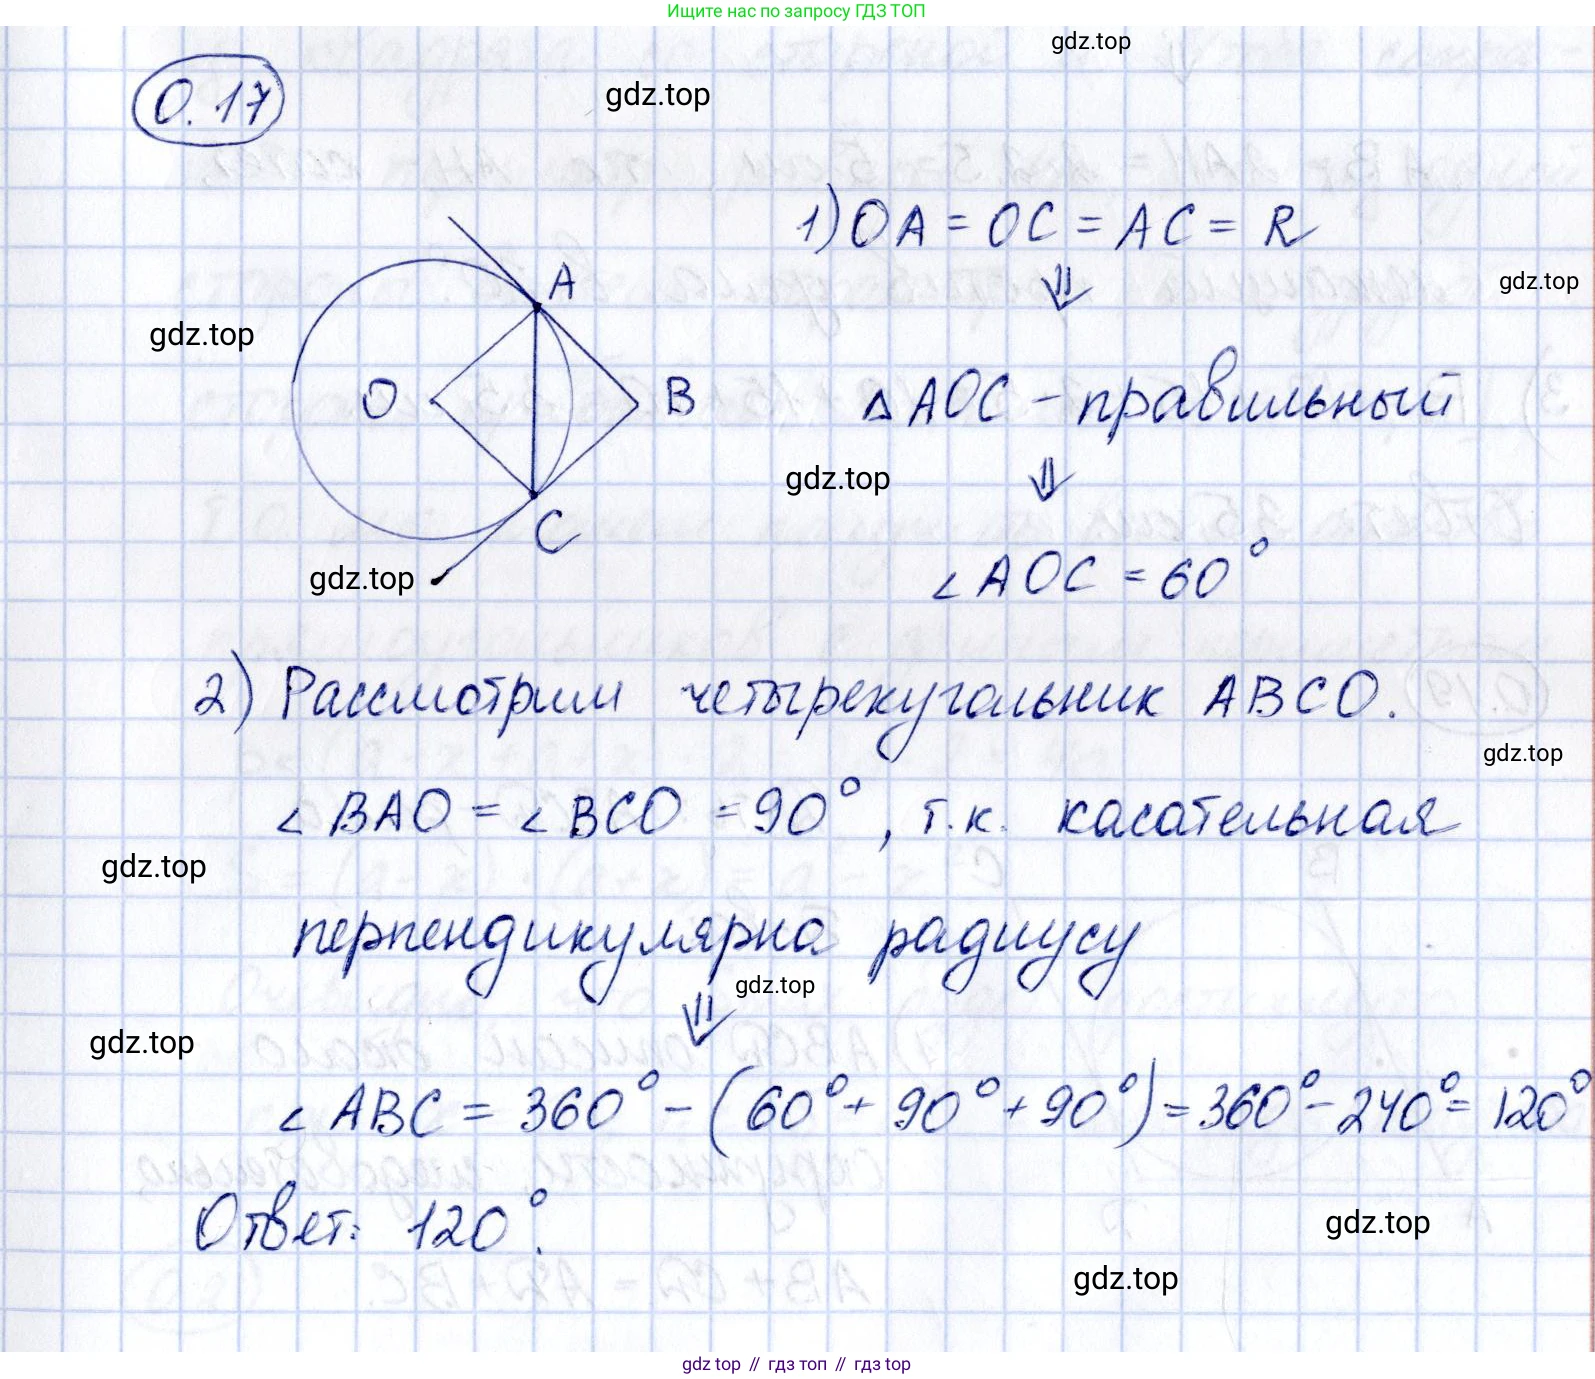 Ищите нас по запросу ГДЗ ТОП
gdz.top
0.17
gdz.top
1) OA = OC = AC = R
⇓
gdz.top
A
gdz.top
O
B
△AOC - правильный
gdz.top
⇓
C
gdz.top
∠AOC = 60°
2) Рассмотрим четырехугольник ABCO.
gdz.top
∠BAO = ∠BCO = 90°, т.к. касательная
gdz.top
перпендикулярна радиусу
gdz.top
⇓
gdz.top
∠ABC = 360° - (60° + 90° + 90°) = 360° - 240° = 120°
Ответ: 120°.
gdz.top
gdz.top
gdz top // гдз топ // gdz top